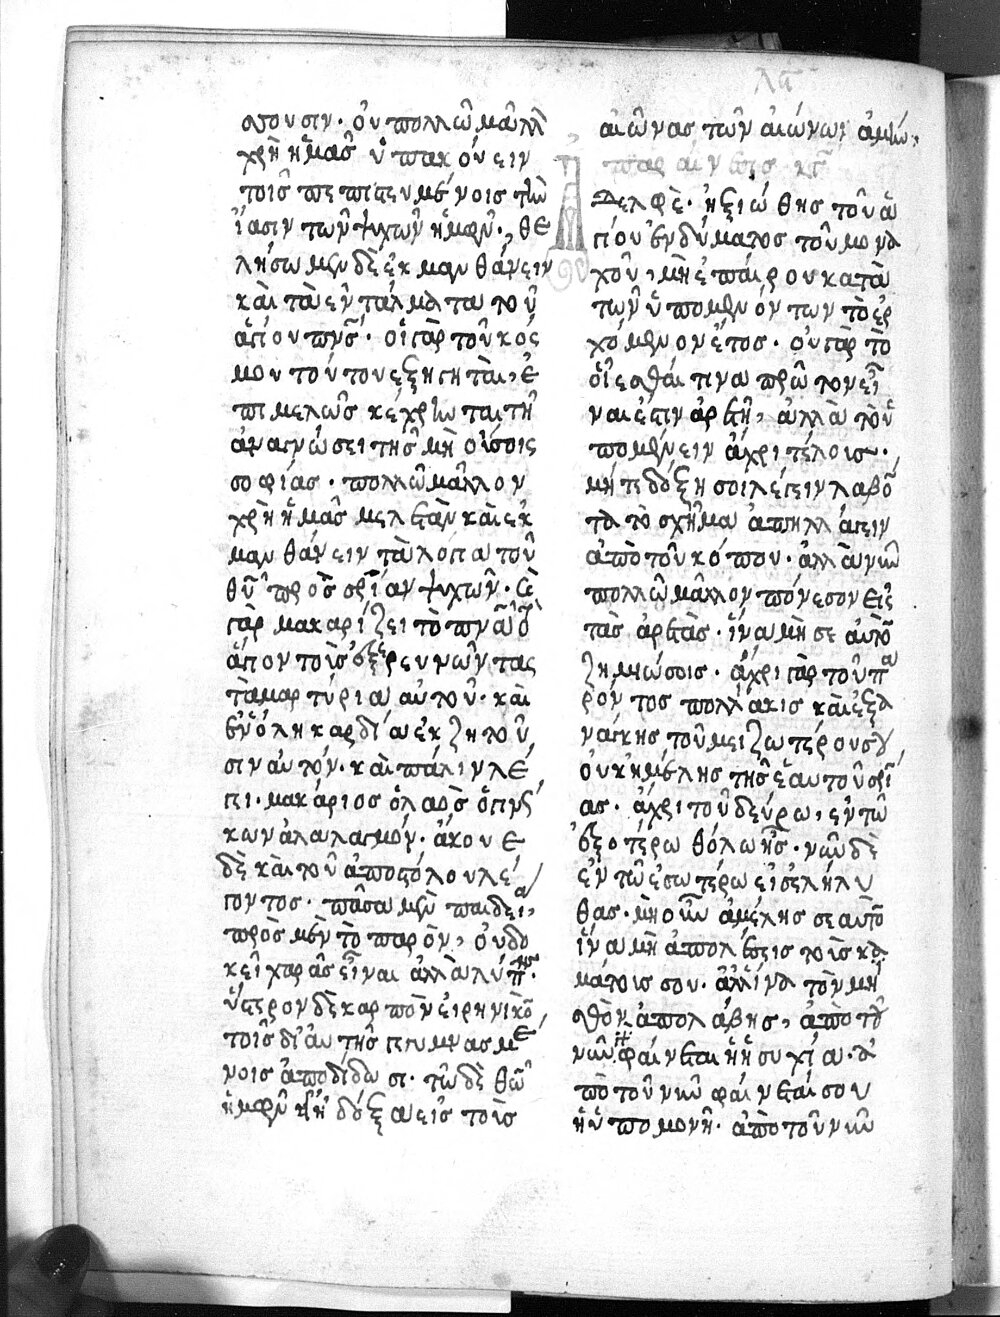 σουσιν· οὐ πολλῶ μᾶλλ
χρὴ ἡμᾶς ὑπακούειν
τοῖς πεπιστευμένοις τὴν
ἴασιν τῶν ψυχῶν ἡμῶν·, θε
λήσωμεν δὲ ἐκμανθάνειν
καὶ τὰ ἐντάλματα τοῦ
ἁγίου πνς· οἱ γὰρ τοῦ κόσ
μου τούτου ἐξηγηταὶ, ἐ
πιμελῶς κέχρηνται τῆ
ἀναγνώσει τῆς μὴ οὔσης
σοφίας· πολλῶ μᾶλλον
χρὴ ἡμᾶς μελετᾶν καὶ ἐκ
μανθάνειν τὰ λόγια τοῦ
θῦ πρὸς σρίαν ψυχῶν·
γὰρ μακαρίζει τὸ πνᾶ τὸ
ἅγιον τοῖς ἐξερευνῶντας
τὰ μαρτύρια αὐτοῦ· καὶ
ἐν ὅλη καρδία ἐκζητοῦ
σιν αὐτόν· καὶ πάλιν λέ
γει· μακάριος ὁ λαὸς ὁ γινώ
σκων ἀλαλαγμόν· ἄκουε
δὲ καὶ τοῦ ἀποστόλου λέ
γοντος· πᾶσα μὲν παιδεία,
πρὸς μὲν τὸ παρὸν, οὐ δο
κεῖ χαρᾶς εἶναι ἀλλὰ λύπης·
ὕστερον δὲ καρπὸν εἰρηνικὸ
τοῖς δι' αὐτῆς γεγυμνασμέ
νοις ἀποδίδωσι· τῶ δὲ θῶ
ἡμῶν ἡ δόξα εἰς τοὺς
λα
αἰῶνας τῶν αἰώνων ἀμήν·
παραίνεσις κς
Ἀδελφὲ· ἠξιώθης τοῦ ἁ
γίου ἐνδύματος τοῦ μονα
χοῦ, μὴ ἐπαίρου κατὰ
τῶν ὑπομενόντων τὸ ἐρ
χόμενον ἔτος· οὐ γὰρ τὸ
οἴεσθαί τινα πρῶτον εἶ
ναι ἐστιν ἀρετὴ, ἀλλὰ τὸ ὑ
πομένειν ἄχρι τέλους·
μήτε δόξη σοι ἐστιν λαβό
τα τὸ σχῆμα ἀπηλλάγην
ἀπὸ τοῦ κόπου· ἀλλὰ νῦν
πολλῶ μᾶλλον πόνεσον εἰς
τὰς ἀρετὰς· ἵνα μὴ σεαυτὸ
ζημιώσεις· ἄχρι γὰρ τοῦ πα
ρόντος πολλάκις καὶ ἐξ ἀ
νάγκης τοῦ μειζωτέρου σου
οὐκ ἠμέλησ τῆς ἑαυτοῦ σρί
ας· ἄχρι τοῦ δεύρω, ἐν τῶ
ἐξοτέρω θόλω ἦς· νῦν δὲ
ἐν τῶ ἐσωτέρω εἰσελήλυ
θας· μὴ οὖν ἀμέλης σεαυτὸ
ἵνα μὴ ἀπολέσεις τοὺς κα
μάτους σου· ἀλλ' ἵνα τὸν μι
σθὸν ἀπολάβης, ἀπὸ τοῦ
νῦν φαίνεται ἡ ἡσυχία· ἀ
πὸ τοῦ νῦν φαίνεταί σου
ἡ ὑπομονὴ· ἀπὸ τοῦ νῦν